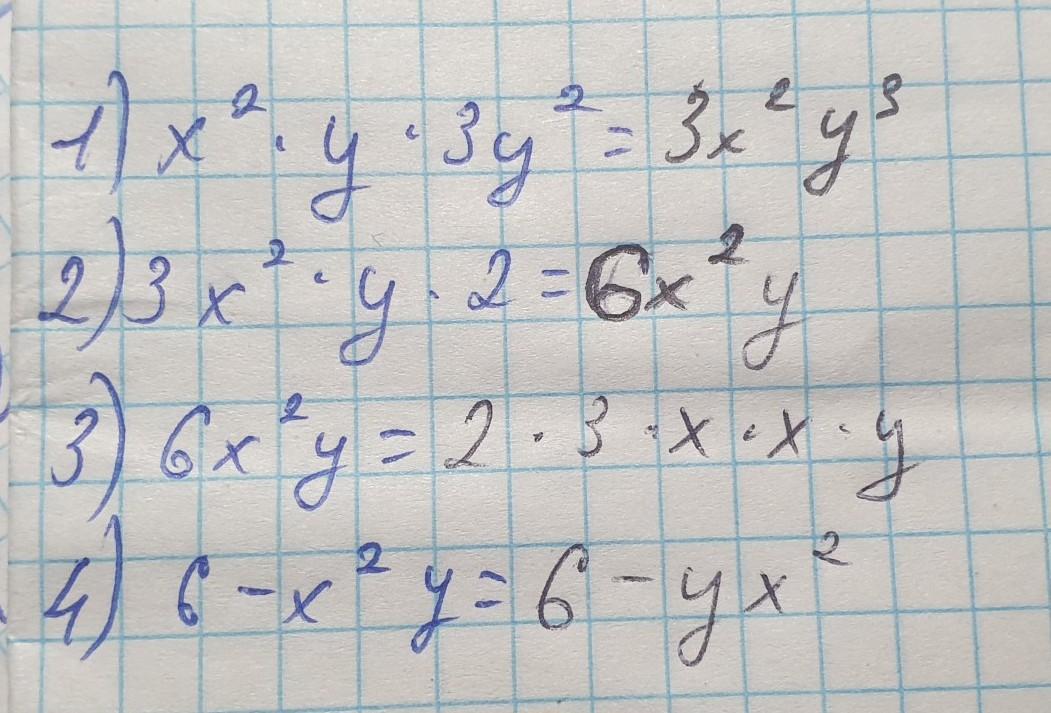 1) x² · y · 3y² = 3x² y³
2) 3x² · y · 2 = 6x² y
3) 6x²y = 2 · 3 · x · x · y
4) 6 - x² y = 6 - y x²